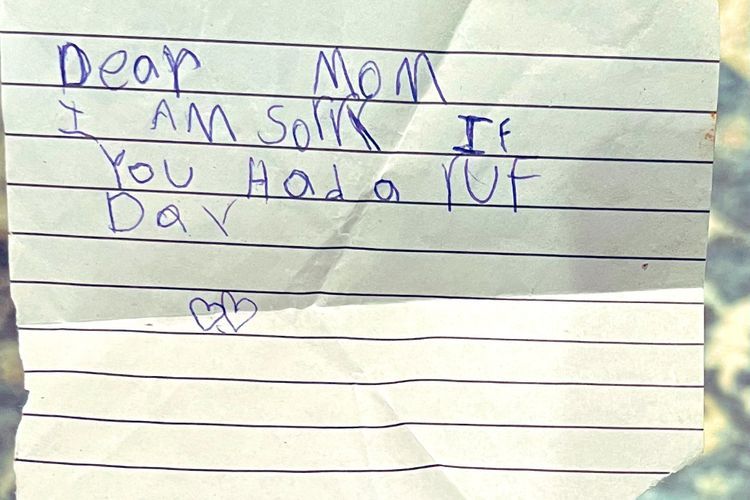 Dear MOM
I AM SORRY IF
YOU Had a RUF
Day